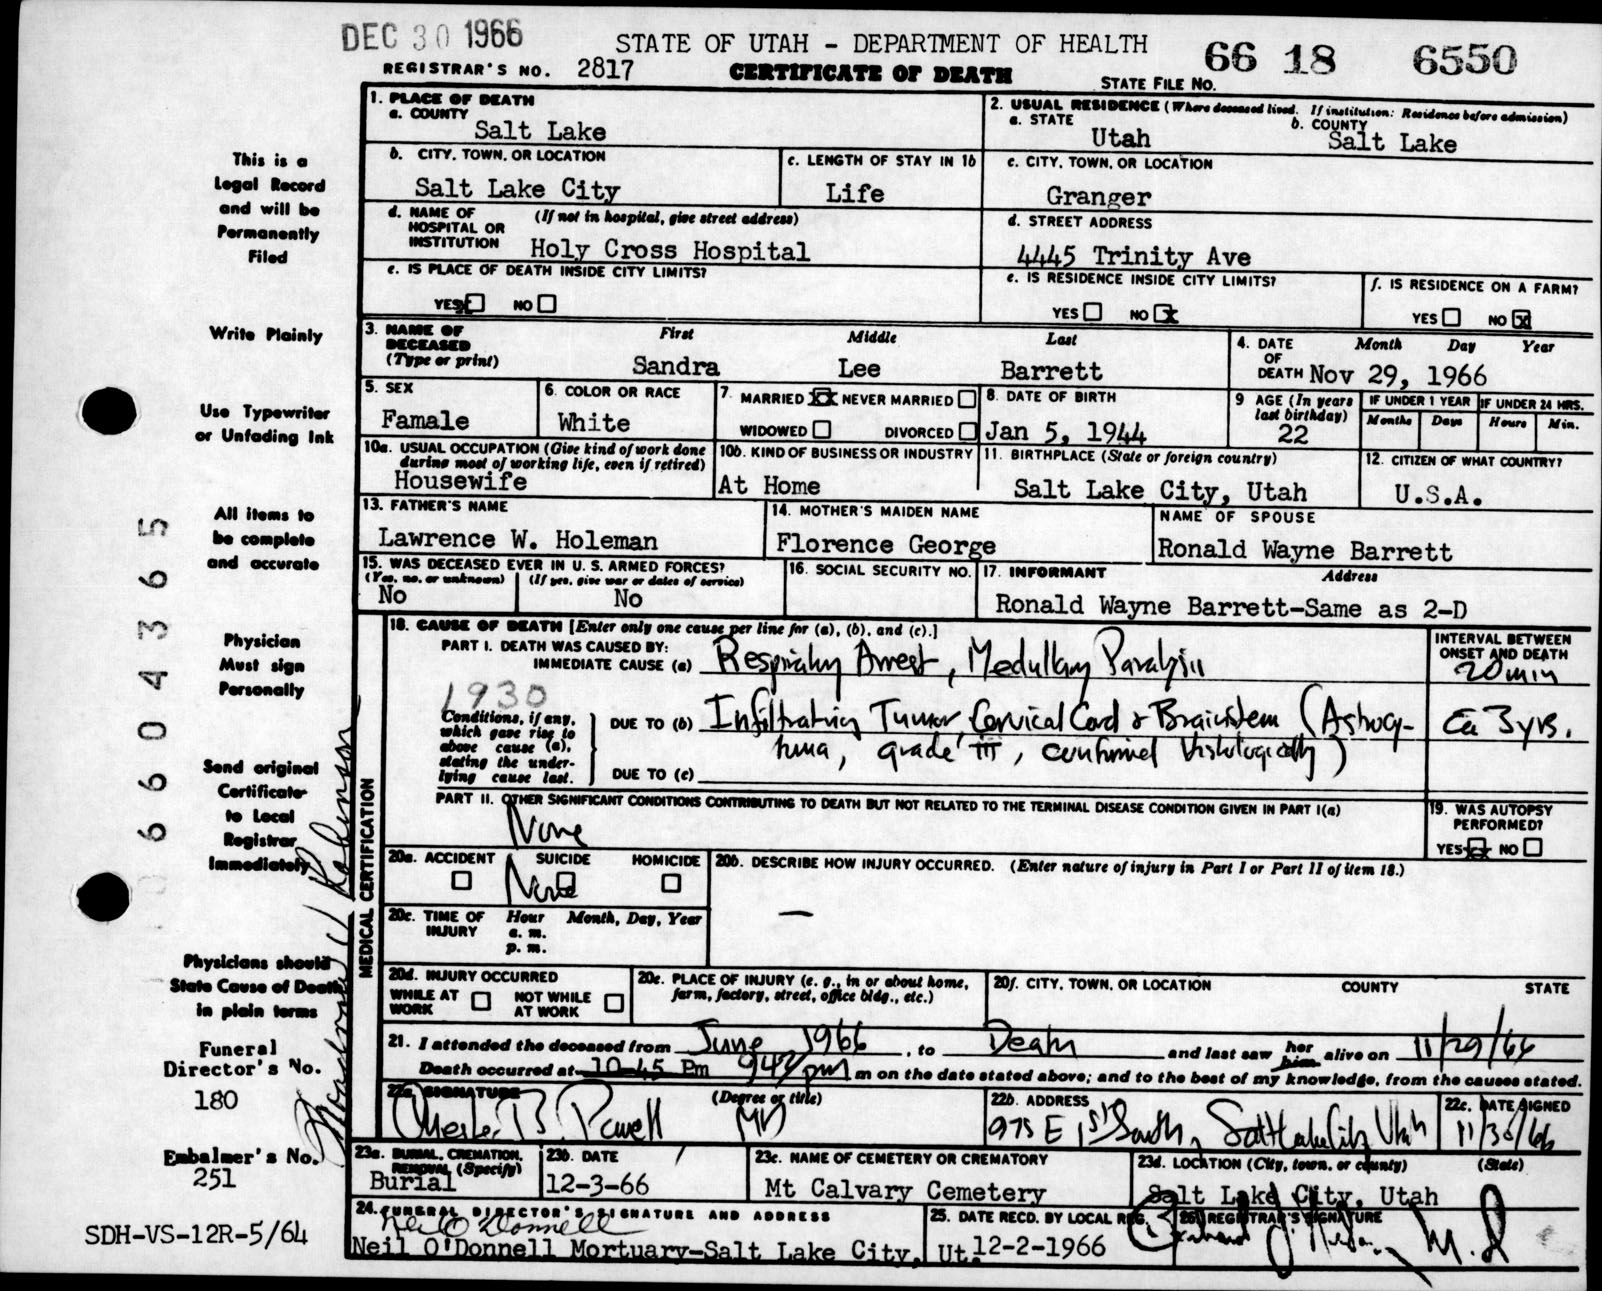 DEC 30 1966
STATE OF UTAH - DEPARTMENT OF HEALTH
66 18 6550
REGISTRAR'S NO. 2817
CERTIFICATE OF DEATH
STATE FILE NO.
This is a
Legal Record
and will be
Permanently
Filed
Write Plainly
Use Typewriter
or Unfading Ink
All items to
be complete
and accurate
Physician
Must sign
Personally
Send original
Certificate
to Local
Registrar
Immediately
Physicians should
State Cause of Death
in plain terms
Funeral
Director's No.
180
Embalmer's No.
251
SDH-VS-12R-5/64
66043655
Robinson
MEDICAL CERTIFICATION
1. PLACE OF DEATH
a. COUNTY
Salt Lake
2. USUAL RESIDENCE (Where deceased lived. If institution: Residence before admission)
a. STATE
Utah
b. COUNTY
Salt Lake
b. CITY, TOWN, OR LOCATION
Salt Lake City
c. LENGTH OF STAY IN 1b
Life
c. CITY, TOWN, OR LOCATION
Granger
d. NAME OF HOSPITAL OR INSTITUTION (If not in hospital, give street address)
Holy Cross Hospital
d. STREET ADDRESS
4445 Trinity Ave
e. IS PLACE OF DEATH INSIDE CITY LIMITS?
YES X NO
e. IS RESIDENCE INSIDE CITY LIMITS?
YES NO X
f. IS RESIDENCE ON A FARM?
YES NO X
3. NAME OF DECEASED (Type or print)
First Middle Last
Sandra Lee Barrett
4. DATE OF DEATH
Month Day Year
Nov 29, 1966
5. SEX
Famale
6. COLOR OR RACE
White
7. MARRIED X NEVER MARRIED
WIDOWED DIVORCED
8. DATE OF BIRTH
Jan 5, 1944
9 AGE (In years last birthday)
22
IF UNDER 1 YEAR
Months Days
IF UNDER 24 HRS.
Hours Min.
10a. USUAL OCCUPATION (Give kind of work done during most of working life, even if retired)
Housewife
10b. KIND OF BUSINESS OR INDUSTRY
At Home
11. BIRTHPLACE (State or foreign country)
Salt Lake City, Utah
12. CITIZEN OF WHAT COUNTRY?
U.S.A.
13. FATHER'S NAME
Lawrence W. Holeman
14. MOTHER'S MAIDEN NAME
Florence George
NAME OF SPOUSE
Ronald Wayne Barrett
15. WAS DECEASED EVER IN U. S. ARMED FORCES?
(Yes, no, or unknown) (If yes, give war or dates of service)
No No
16. SOCIAL SECURITY NO.
17. INFORMANT Address
Ronald Wayne Barrett-Same as 2-D
18. CAUSE OF DEATH [Enter only one cause per line for (a), (b), and (c).]
PART I. DEATH WAS CAUSED BY:
IMMEDIATE CAUSE (a) Respiratory Arrest, Medullary Paralysis
INTERVAL BETWEEN ONSET AND DEATH
20 min
1930
Conditions, if any, which gave rise to above cause (a), stating the underlying cause last.
DUE TO (b) Infiltrating Tumor, Cervical Cord & Brainstem (Astrocy-
toma, grade III, confirmed histologically)
ca 3 yrs.
DUE TO (c)
PART II. OTHER SIGNIFICANT CONDITIONS CONTRIBUTING TO DEATH BUT NOT RELATED TO THE TERMINAL DISEASE CONDITION GIVEN IN PART I(a)
None
19. WAS AUTOPSY PERFORMED?
YES X NO
20a. ACCIDENT SUICIDE HOMICIDE
None
20b. DESCRIBE HOW INJURY OCCURRED. (Enter nature of injury in Part I or Part II of item 18.)
—
20c. TIME OF INJURY
Hour Month, Day, Year
a. m.
p. m.
20d. INJURY OCCURRED
WHILE AT WORK NOT WHILE AT WORK
20e. PLACE OF INJURY (e. g., in or about home, farm, factory, street, office bldg., etc.)
20f. CITY, TOWN, OR LOCATION COUNTY STATE
21. I attended the deceased from June 1966, to Death and last saw her him alive on 11/29/66
Death occurred at 10-45 Pm 947 pm m on the date stated above; and to the best of my knowledge, from the causes stated.
22a. SIGNATURE (Degree or title)
Chester B. Powell MD
22b. ADDRESS
975 E 1st South, Salt Lake City, Utah
22c. DATE SIGNED
11/30/66
23a. BURIAL, CREMATION, REMOVAL (Specify)
Burial
23b. DATE
12-3-66
23c. NAME OF CEMETERY OR CREMATORY
Mt Calvary Cemetery
23d. LOCATION (City, town, or county) (State)
Salt Lake City, Utah
24. FUNERAL DIRECTOR'S SIGNATURE AND ADDRESS
Neil O'Donnell
Neil O'Donnell Mortuary-Salt Lake City, Ut.
25. DATE RECD. BY LOCAL REG.
12-2-1966
26. REGISTRAR'S SIGNATURE
M.D